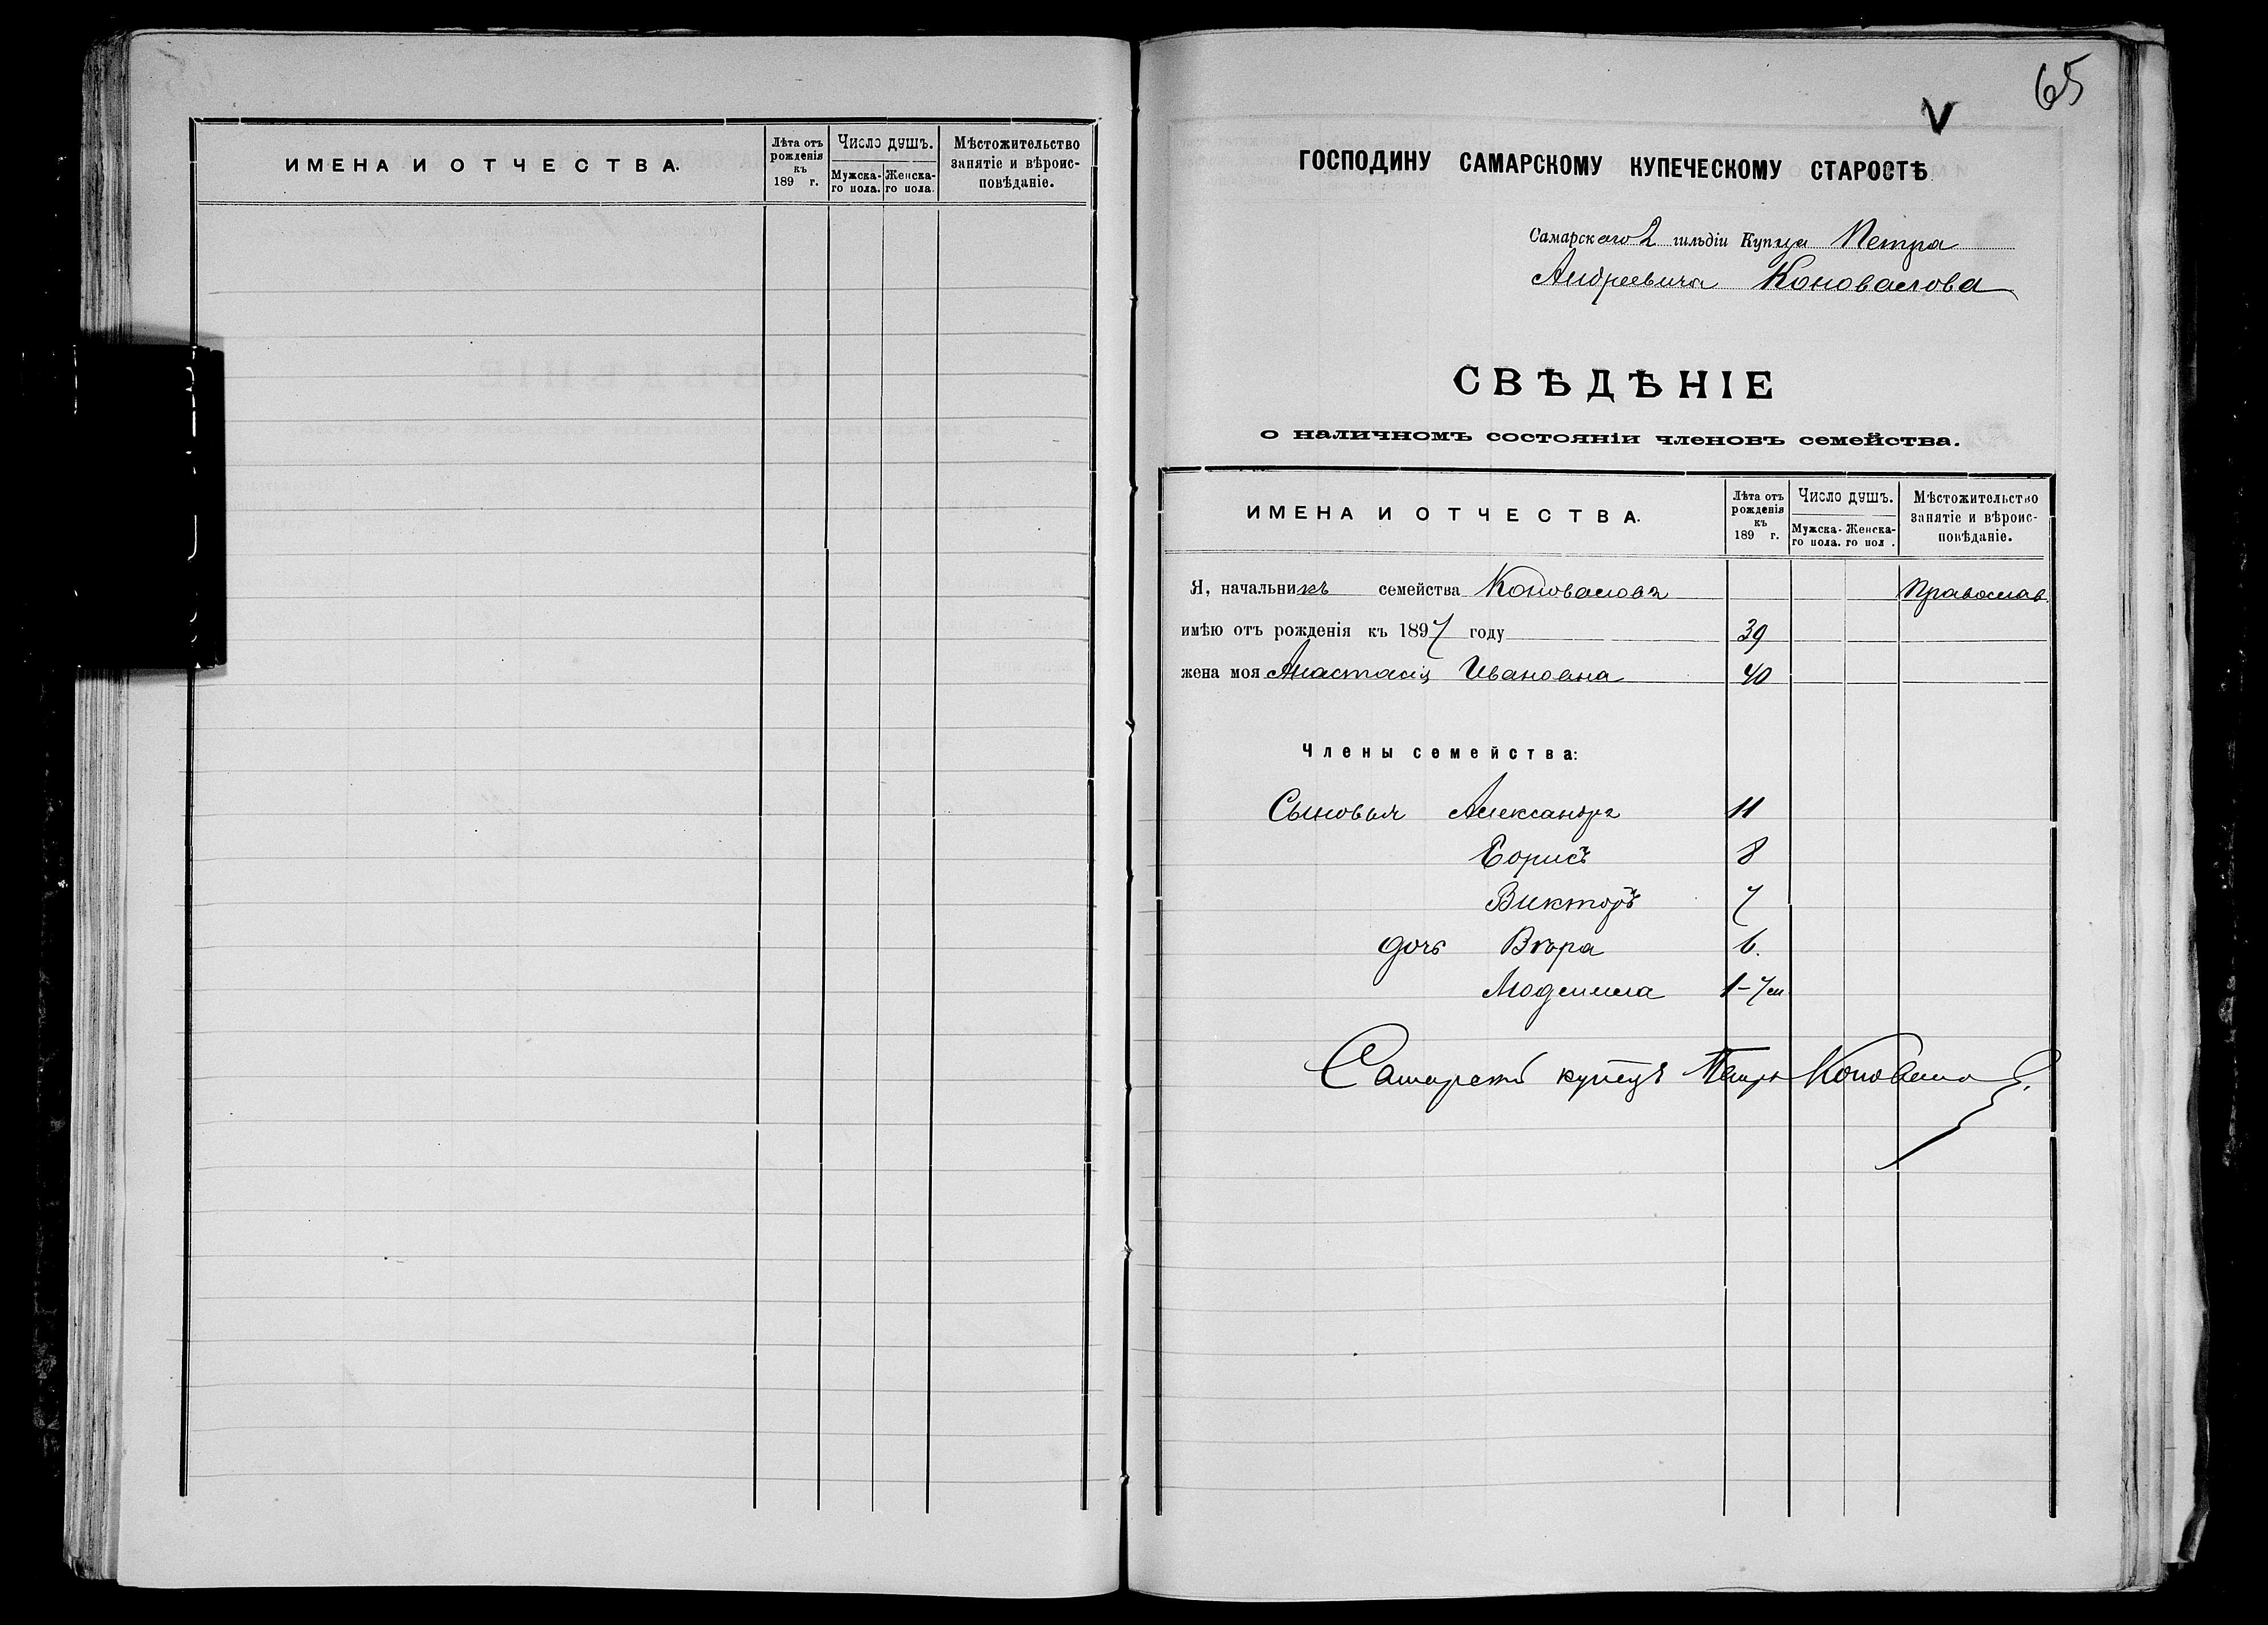 ИМЕНА И ОТЧЕСТВА.
Лѣта отъ рожденія къ 189 г.
Число душъ.
Мужска-го пола.
Женска-го пола.
Мѣстожительство занятіе и вѣроис-повѣданіе.
65
V
ГОСПОДИНУ САМАРСКОМУ КУПЕЧЕСКОМУ СТАРОСТѢ
Самарскаго 2 гильдіи Купца Петра
Андреевича Коновалова
СВѢДѢНІЕ
о наличномъ состояніи членовъ семейства.
ИМЕНА И ОТЧЕСТВА.
Лѣта отъ рожденія къ 189 г.
Число душъ.
Мужска-го пола.
Женска-го пол .
Мѣстожительство занятіе и вѣроис-повѣданіе.
Я, начальникъ семейства Коноваловъ Православ.
имѣю отъ рожденія къ 1897 году 39
жена моя Анастасія Ивановна 40
Члены семейства:
Сыновья Александръ 11
Борисъ 8
Викторъ 7
дочь Вѣра 6.
Людмила 1-7м
Самарскій купецъ Петръ Коноваловъ.